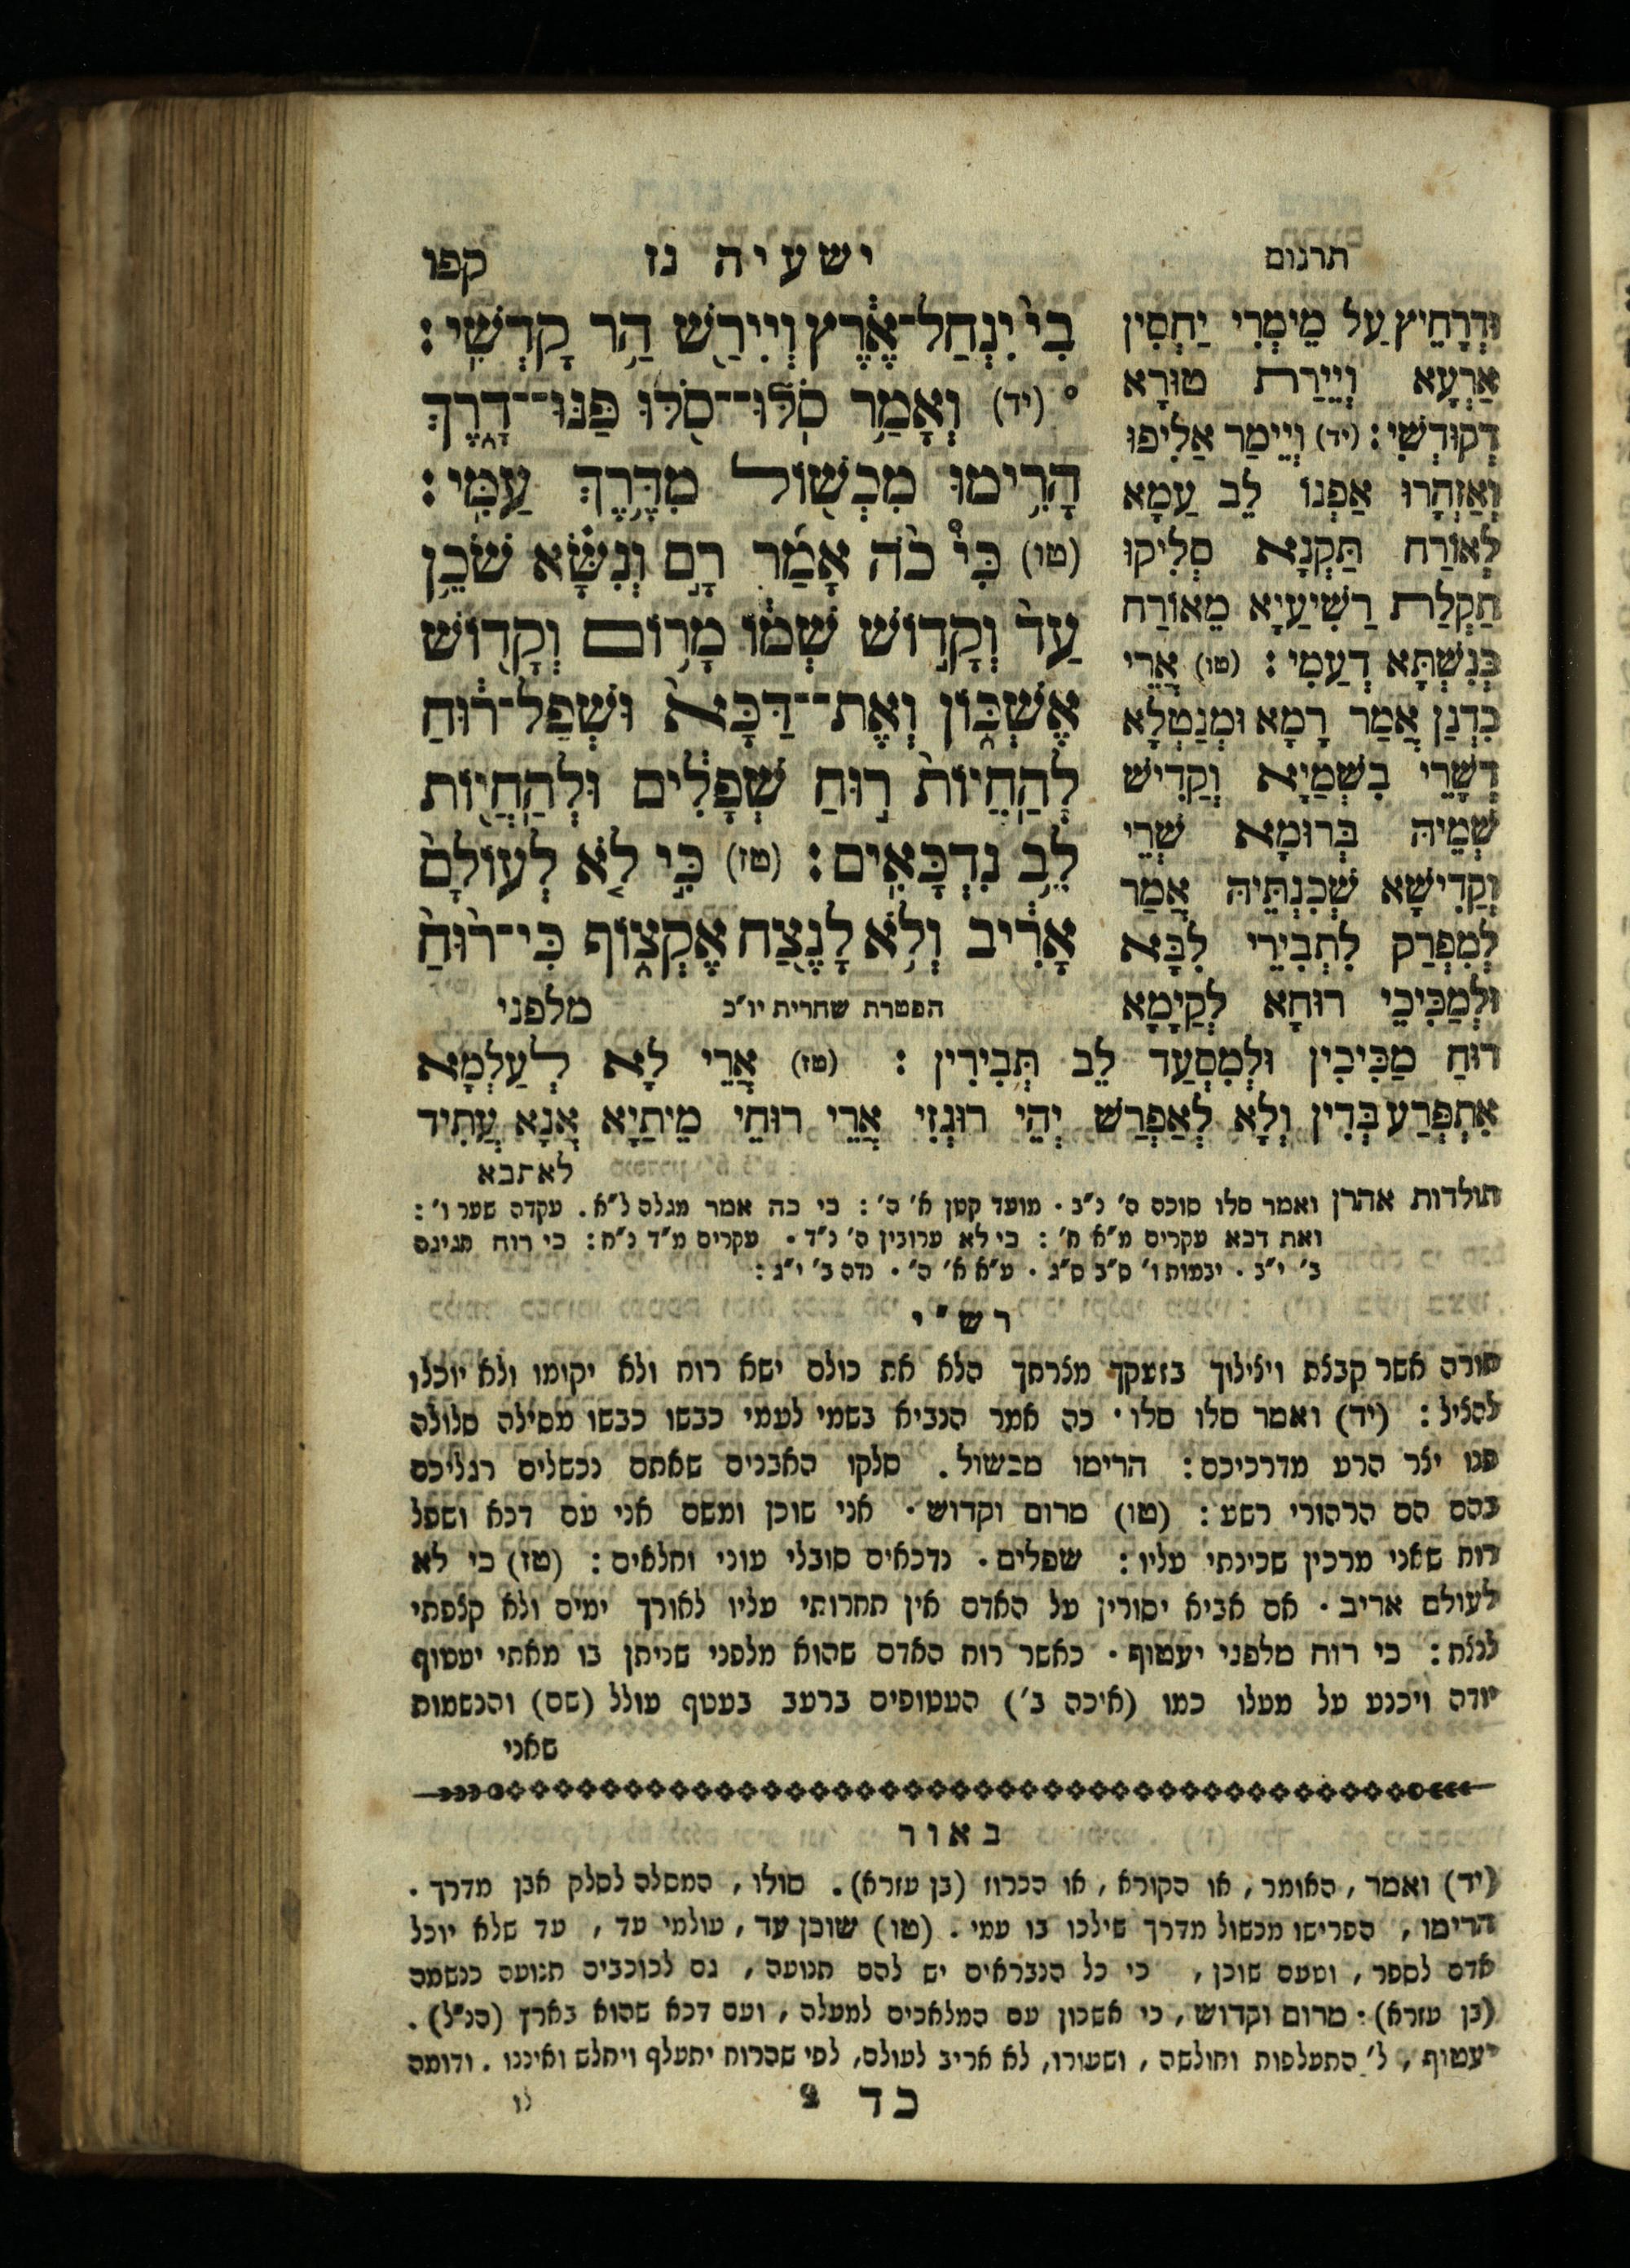 תרגום
ישעיה נז
קפו
בִי֙ יִנְחַל־אֶ֔רֶץ וְיִירַ֖שׁ הַר־ קָדְשִֽׁי׃
° (יד) וְאָמַ֥ר סֹֽלּוּ־־סֹ֖לּוּ פַּנּוּ־־דָ֑רֶךְ
הָרִ֥ימוּ מִכְשׁ֖וֹל מִדֶּ֥רֶךְ עַמִּֽי׃
(טו) כִּי֩ כֹ֨ה אָמַ֜ר רָ֣ם וְנִשָּׂ֗א שֹׁכֵ֥ן
עַד֙ וְקָד֣וֹשׁ שְׁמ֔וֹ מָר֥וֹם וְקָד֖וֹשׁ
אֶשְׁכּ֑וֹן וְאֶת־־דַּכָּא֙ וּשְׁפַל־ר֔וּחַ
לְהַֽחֲיוֹת֙ ר֣וּחַ שְׁפָלִ֔ים וּלְהַֽחֲי֖וֹת
לֵ֥ב נִדְכָּאִֽים׃ (טז) כִּ֣י לֹ֤א לְעוֹלָם֙
אָרִ֔יב וְלֹ֥א לָנֶ֖צַח אֶקְצ֑וֹף כִּי־ר֙וּחַ֙
הפטרת שחרית יו״כ
מלפני
וּדְרָחֵיץ עַל מֵימְרִי יַחְסִין
אַרְעָא וְיֵירַת טוּרָא
דְקוּדְשִׁי: (יד) וְיֵימַר אַלִיפוּ
וְאַזְהָרוּ אַפְנוֹ לֵב עַמָא
לְאוֹרַח תַּקְנָא סְלִיקוּ
תַקְלַת רַשִׁיעַיָא מֵאוֹרַח
כְּנִשְׁתָּא דְעַמִי: (טו) אֲרֵי
כִדְנַן אֲמַר רָמָא וּמְנַטְלָא
דְשָׁרֵי בִשְׁמַיָא וְקַדִישׁ
שְׁמֵיהּ בְּרוּמָא שְׁרֵי
וְקַדִישָׁא שְׁכִנְתֵּיהּ אֲמַר
לְמִפְרַק לִתְבִירֵי לִבָּא
וּלְמַכִּיכֵי רוּחָא לְקַיָמָא
רוּחַ מַכִּיכִין וּלְמִסְעַד לֵב תְּבִירִין : (טז) אֲרֵי לָא לְעַלְמָא
אִתְפְּרַע בְּדִין וְלָא לְאַפְרַשׁ יְהֵי רוּגְזִי אֲרֵי רוּחֵי מֵיתַיָא אֲנָא עֲתִיד
לאתבא
תולדות אהרן ואמר סלו סוכה ה׳ נ״ב · מועד קטן א׳ ה׳ : כי כה אמר מגלה ל״א . עקדה שער ו׳ :
ואת דכא עקרים מ״א ח׳ : כי לא ערובין ה׳ נ״ד · עקרים מ״ד נ״ח : כי רוח חגיגה
ב׳ י״ב · יבמות ו׳ ס״ב ס״ג · ע״א א׳ ה׳ · נדה ב׳ י״ג :
רש״י
תורה אשר קבצת ויצילוך בזעקך מצרתך הלא את כולם ישא רוח ולא יקומו ולא יוכלו
להציל : (יד) ואמר סלו סלו · כה אמר הנביא בשמי לעמי כבשו כבשו מסילה סלולה
פנו יצר הרע מדרכיכם : הרימו מכשול . סלקו האבנים שאתם נכשלים רגליכם
בהם הם הרהורי רשע : (טו) מרום וקדוש · אני שוכן ומשם אני עם דכא ושפל
רוח שאני מרכין שכינתי עליו : שפלים · נדכאים סובלי עוני וחלאים : (טז) כי לא
לעולם אריב · אם אביא יסורין על האדם אין תחרותי עליו לאורך ימים ולא קצפתי
לנצח : כי רוח מלפני יעטוף · כאשר רוח האדם שהוא מלפני שניתן בו מאתי יעטוף
יודה ויכנע על מעלו כמו (איכה ב׳) העטופים ברעב בעטף עולל (שם) והנשמות
שאני
באור
(יד) ואמר , האומר , או הקורא , או הכרוז (בן עזרא) . סולו , המסלה לסלק אבן מדרך .
הרימו , הפרישו מכשול מדרך שילכו בו עמי . (טו) שוכן עד , עולמי עד , עד שלא יוכל
אדם לספר , וטעם שוכן , כי כל הנבראים יש להם תנועה , גם לכוכבים תנועה כנשמה
(בן עזרא) · מרום וקדוש , כי אשכון עם המלאכים למעלה , ועם דכא שהוא בארץ (הנ״ל) .
יעטוף , ל׳ התעלפות וחולשה , ושעורו , לא אריב לעולם , לפי שהרוח יתעלף ויחלש ואיננו . ודומה
כד 2
לו